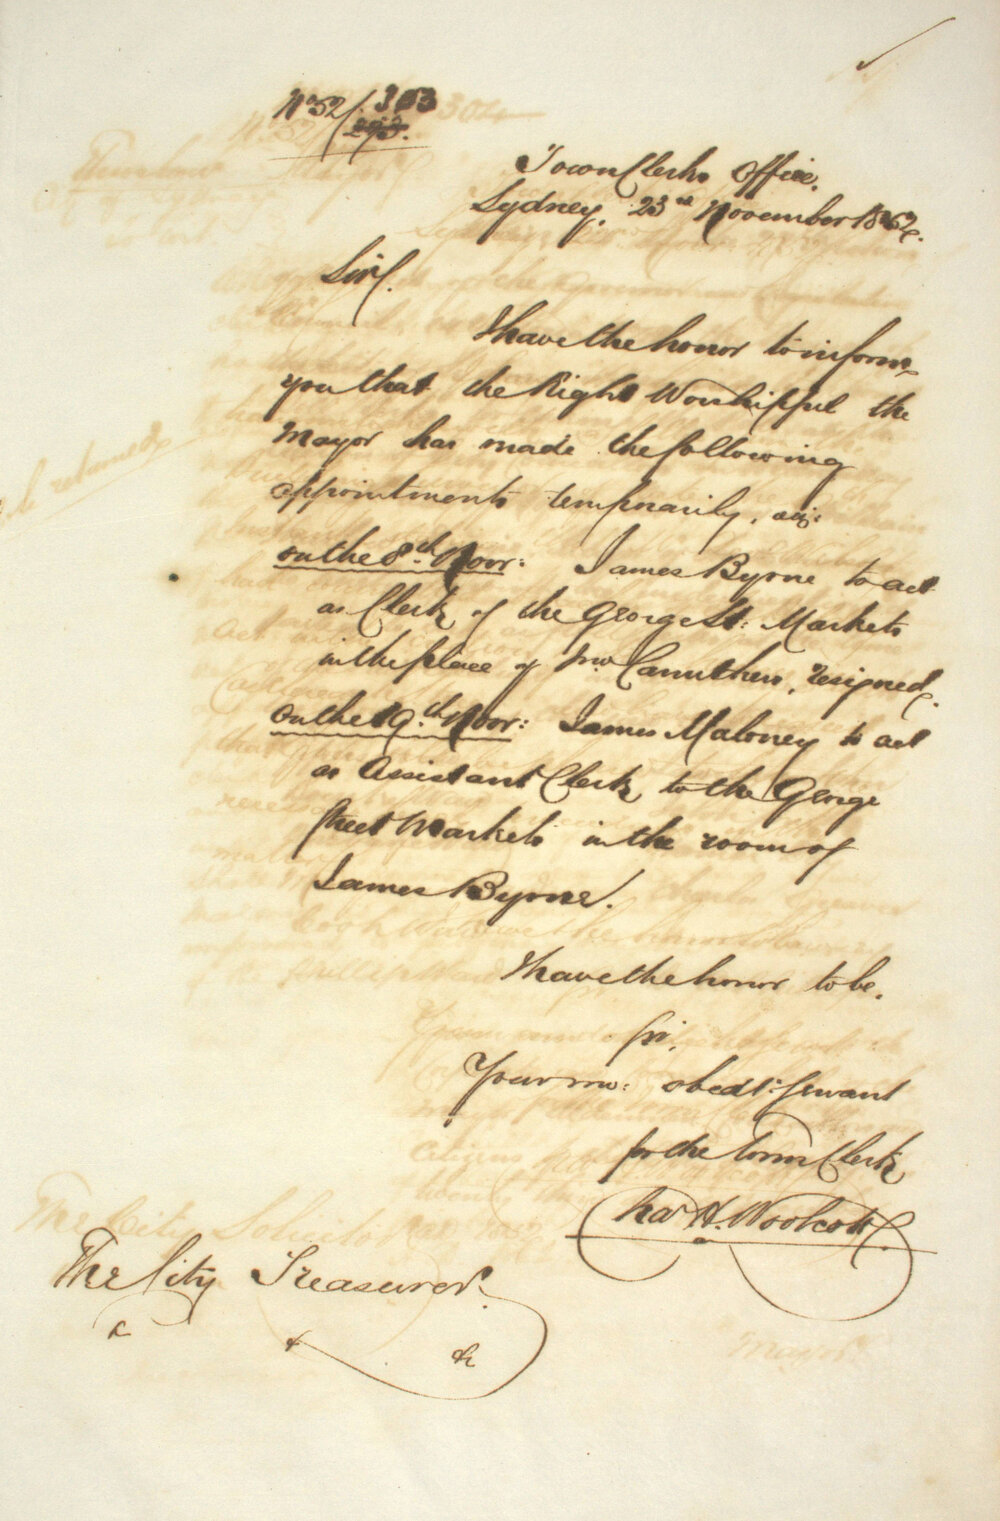 No 52/. 303
293.
Town Clerks Office,
Sydney, 23rd November 1862.
Sir/.
I have the honor to inform
you that the Right Worshipful the
Mayor has made the following
appointments temporarily, viz:
on the 8th Novr: James Byrne to act
as Clerk of the George St: Markets
in the place of Mr Carruthers, resigned.
On the 19th Novr: James Maloney to act
as Assistant Clerk to the George
Street Markets in the room of
James Byrne.
I have the honor to be,
Sir,
Your mo: obedt: Servant
for the Town Clerk
Chas H. Woolcott
The City Treasurer.
&c &c